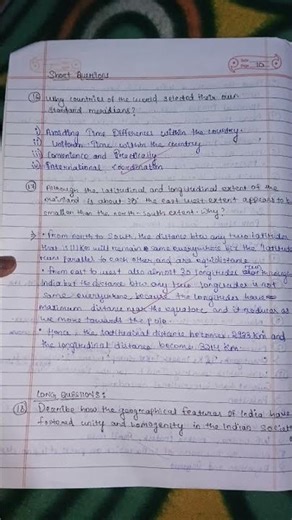 Short Questions
16) Why countries of the world selected their own
standard meridians?
i) Avoiding Time Differences within the country.
ii) Uniform Time within the country
iii) Convenience and Practicality
iv) International coordination
17) Although the latitudinal and longitudinal extent of the
mainland is about 30° the east west extent appears to be
smaller than the north-south extent. Why?
• From north to South the distance btw any two latitudes
that is 111 km will remain same everywhere bcz the latitudes
runs parallel to each other and are equidistance.
• from east to west also almost 30 longitudes through
India but the distance btw any two longitudes is not
same everywhere because the longitudes have
maximum distance near the equator and it reduces as
we move towards the pole.
• Hence the latitudinal distance becomes 2933 Km and
the longitudinal distance become 3214 Km.
LONG QUESTIONS:
18) Describe how the geographical features of India have
fostered unity and homogenity in the Indian society